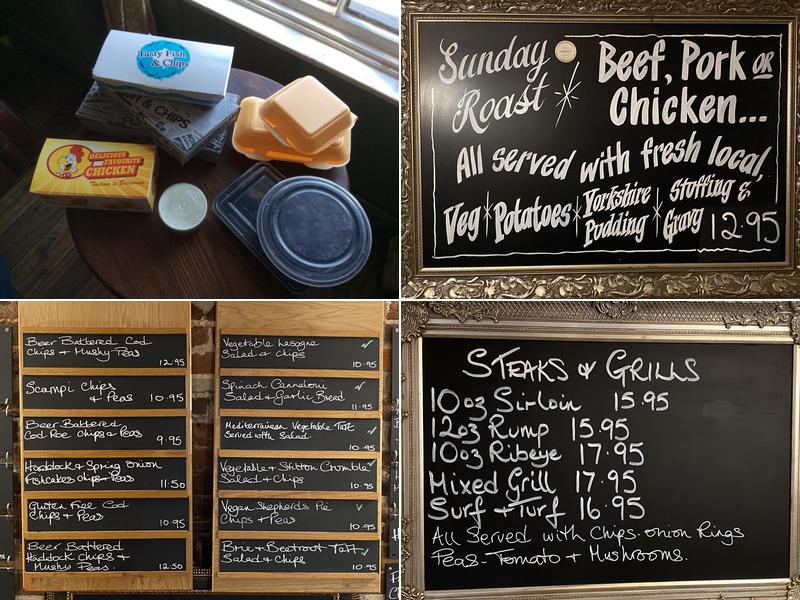 Tasty Fish
& Chips
FISH & CHIPS
DELICIOUS
YOUR
FAVOURITE
CHICKEN
Tasting is Believing
Sunday
Roast
Beef, Pork OR
Chicken...
All served with fresh local,
Veg Potatoes Yorkshire Pudding Stuffing & Gravy 12.95
Beer Battered Cod
Chips + Mushy Peas
12.95
Scampi Chips
& Peas 10.95
Beer Battered
Cod Roe Chips & Peas
9.95
Haddock & Spring Onion
Fishcakes chips & Peas
11.50
Gluten Free Cod
Chips & Peas
10.95
Beer Battered
Haddock Chips &
Mushy Peas
12.50
Vegetable Lasagne
Salad & Chips
10.95
Spinach Cannaloni
Salad & Garlic Bread
11.95
Mediterranean Vegetable Tart
Served with Salad
10.95
Vegetable & Stilton Crumble
Salad & Chips
10.95
Vegan Shepherd's Pie
Chips & Peas
10.95
Brie & Beetroot Tart
Salad & Chips
10.95
STEAKS & GRILLS
10oz Sirloin 15.95
12oz Rump 15.95
10oz Ribeye 17.95
Mixed Grill 17.95
Surf + Turf 16.95
All Served with Chips. Onion Rings
Peas - Tomato + Mushrooms.